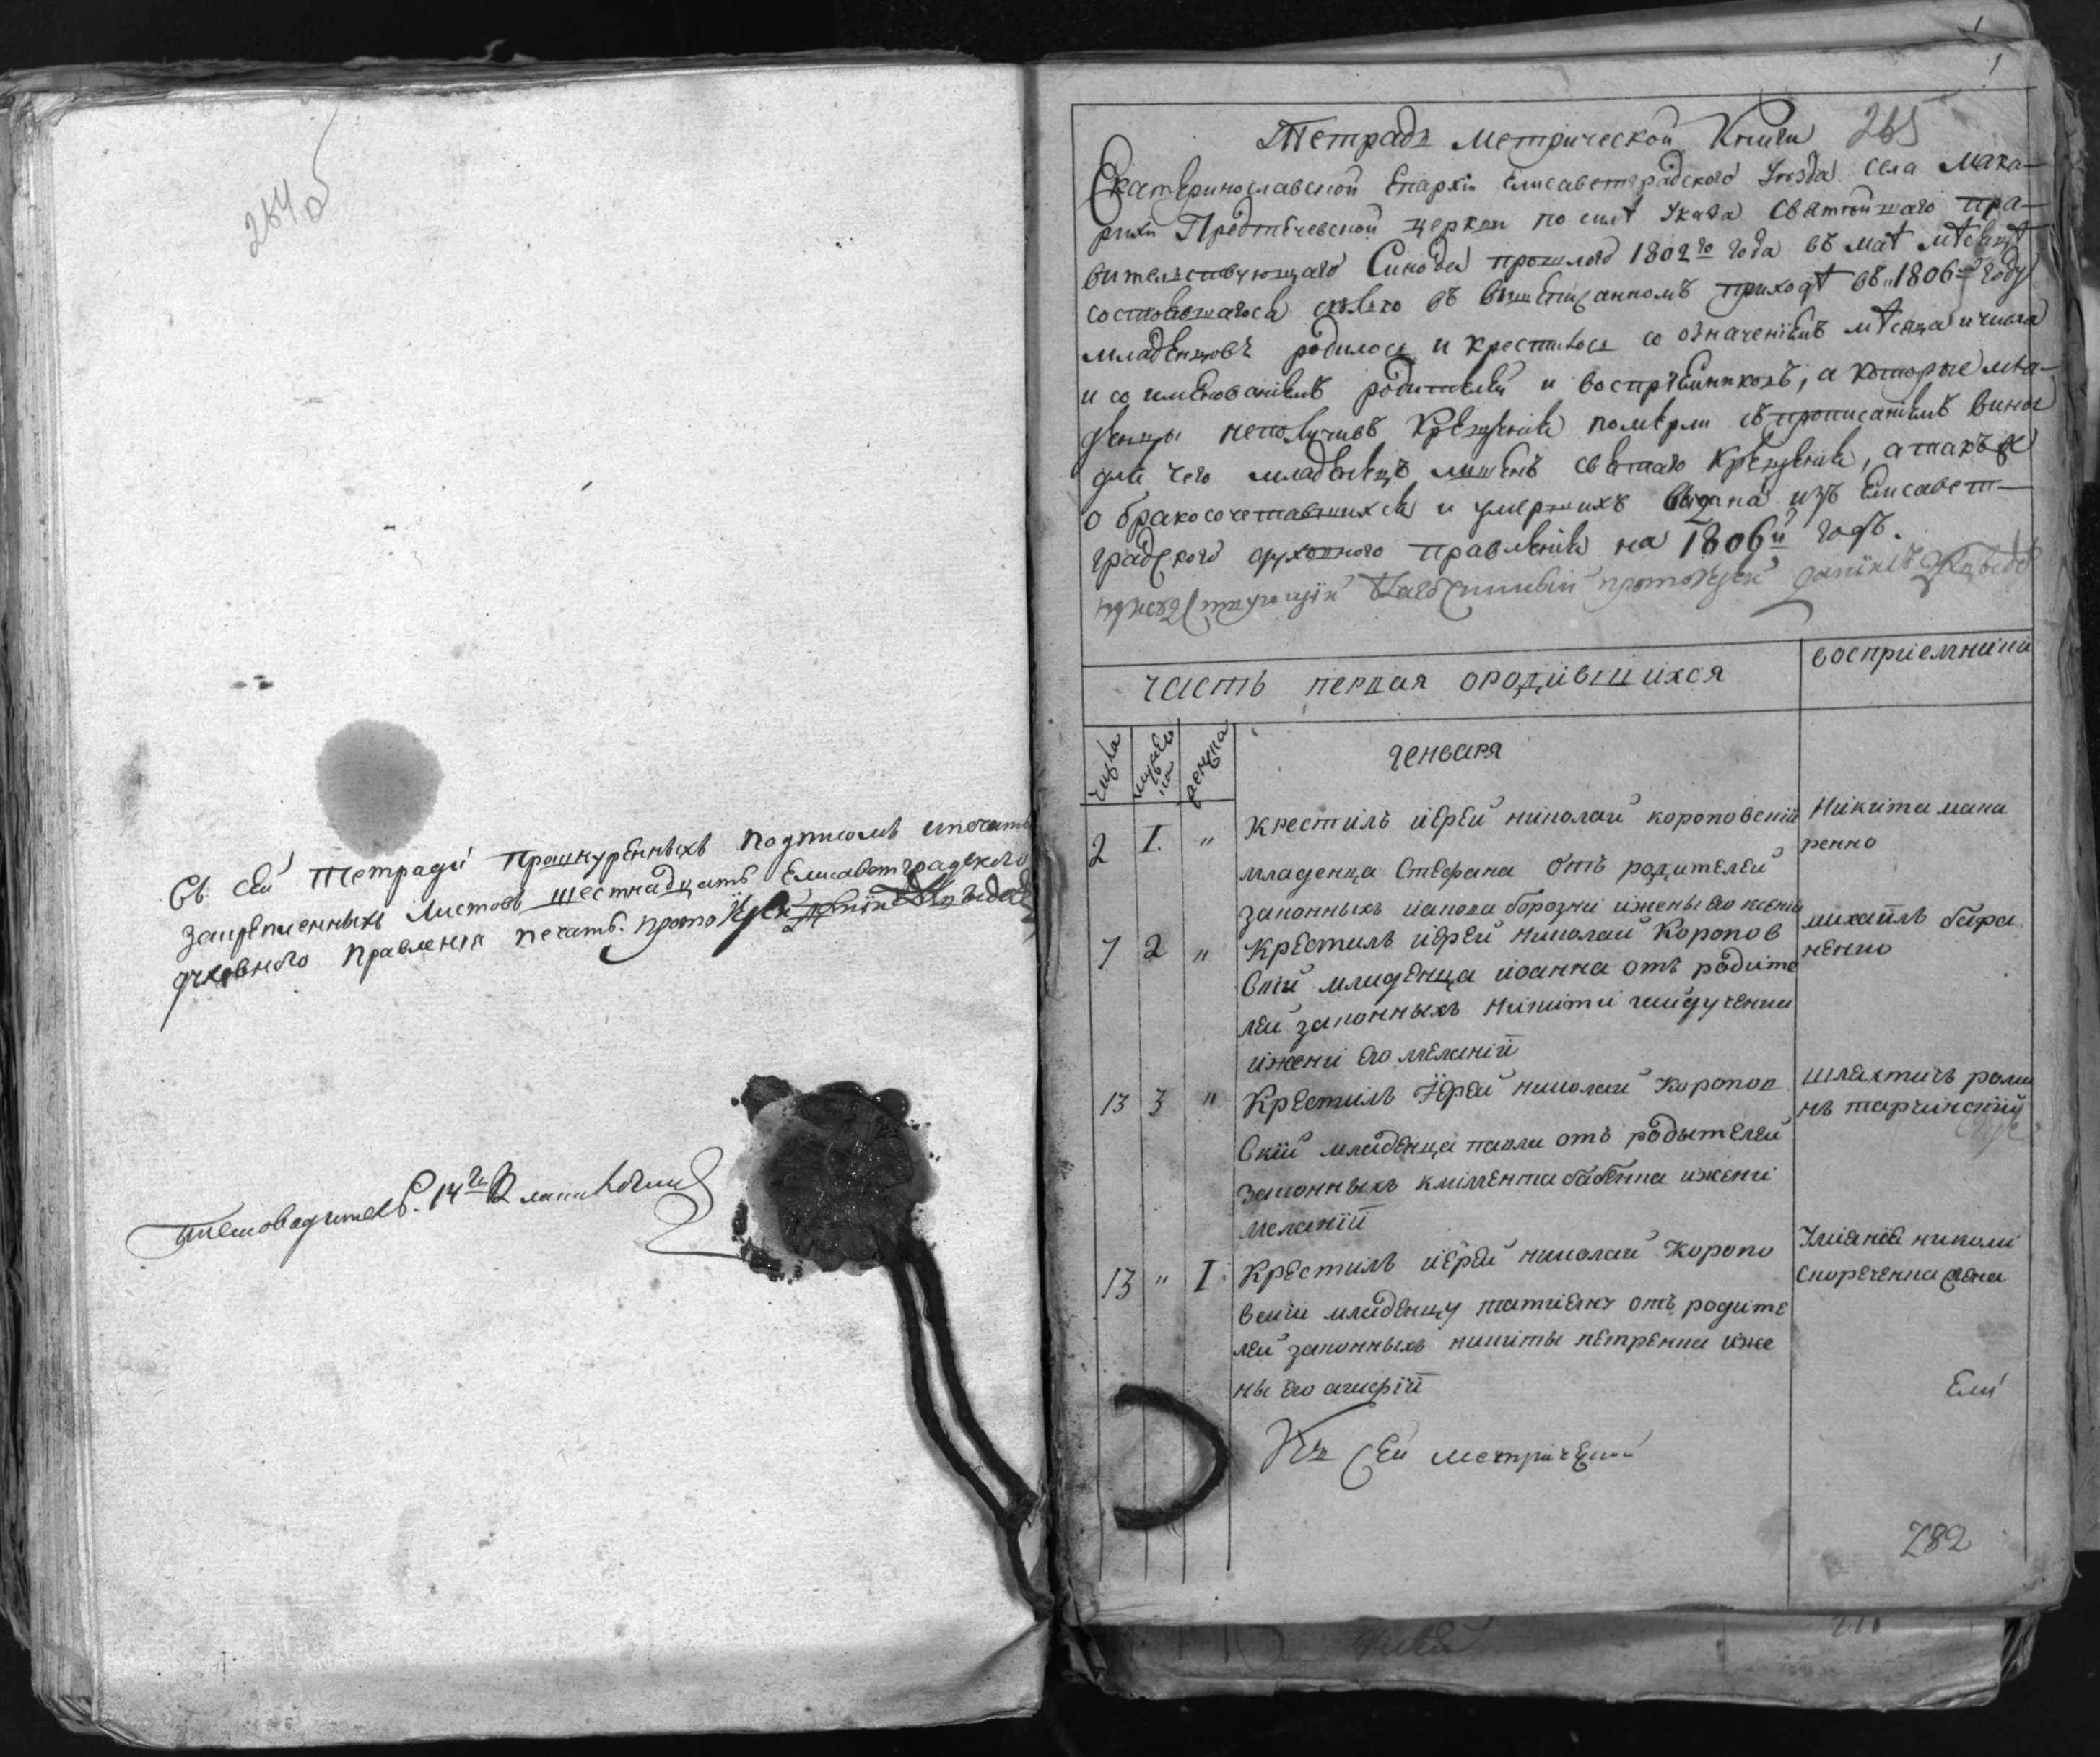 264 а
Въ сей тетради прошнуренныхъ подписомъ
закрепленныхъ листовъ шестнадцать Елисаветградского
духовного правленія печать. протоіерей
1
1
265
Тетрадь метрической Книги
Екатеринославской Епархіи Елисаветградского Уезда села Мака-
рихи Предтечевской церкви по силѣ Указа Святѣйшаго пра-
вительствующаго Синода прошлаго 1802го года въ маѣ мѣсяцѣ
состоявшагося сколько въ вышеписанномъ приходѣ въ 1806м году
младенцовъ родилось и крестилось со означеніемъ мѣсяца и числа
и со именованіемъ родителей и воспріемниковъ, а которые мла-
денцы неполучивъ крещенія померли съ прописаніемъ вины
для чего младенецъ лишенъ святаго крещенія, а такъ же
о бракосочетавшихся и умершихъ выдана изъ Елисавет-
градского духовного правленія на 1806й годъ.
присудствующій протоіерей
часть первая ородившихся
восприемники
числа
генваря
2 1. „ Крестилъ іерей николай короповскій
младенца Стефана отъ родителей
законныхъ іакова борозни ижены его
Никита мака
ренко
7 2 „ Крестилъ іерей николай Коропов
скій младенца иоанна отъ родите
лей законныхъ никити гайдученка
ижени его меланій
михаилъ бара
ненко
13 3 „ Крестилъ іерей николай Коропов
скій младенца павла отъ родытелей
законныхъ климента бабенка ижени
меланій
шляхтичъ рома
нъ тарчинскій
13 „ 1 Крестилъ іерей николай Коропо
вскій младенцу татіану отъ родите
лей законныхъ никиты петренка иже
ны его агафій
Уліянія николи
скореченка жена
Ели
Къ сей метрической
282